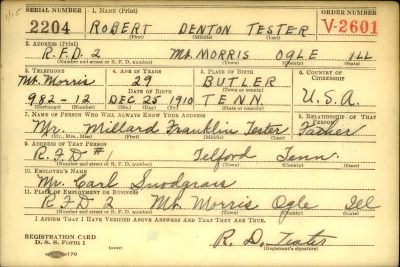 SERIAL NUMBER 1. NAME (Print) ORDER NUMBER
2204 ROBERT DENTON TESTER V-2601
(First) (Middle) (Last)
2. ADDRESS (Print)
R.F.D 2 Mt. MORRIS OGLE ILL
(Number and street or R. F. D. number) (Town) (County) (State)
3. TELEPHONE 4. AGE IN YEARS 5. PLACE OF BIRTH 6. COUNTRY OF CITIZENSHIP
Mt. Morris 29 BUTLER
DATE OF BIRTH (Town or county)
982-12 DEC 25 1910 TENN. U.S.A.
(Exchange) (Number) (Mo.) (Day) (Yr.) (State or country)
7. NAME OF PERSON WHO WILL ALWAYS KNOW YOUR ADDRESS 8. RELATIONSHIP OF THAT PERSON
Mr. Millard Franklin Tester Father
(Mr., Mrs., Miss) (First) (Middle) (Last)
9. ADDRESS OF THAT PERSON
R.F.D # Telford Tenn.
(Number and street or R. F. D. number) (Town) (County) (State)
10. EMPLOYER'S NAME
Mr. Carl Snodgrass
11. PLACE OF EMPLOYMENT OR BUSINESS
R.F.D 2 Mt. Morris Ogle Ill
(Number and street or R. F. D. number) (Town) (County) (State)
I AFFIRM THAT I HAVE VERIFIED ABOVE ANSWERS AND THAT THEY ARE TRUE.
REGISTRATION CARD
D. S. S. Form 1 (over) R. D. Tester
(Registrant's signature)